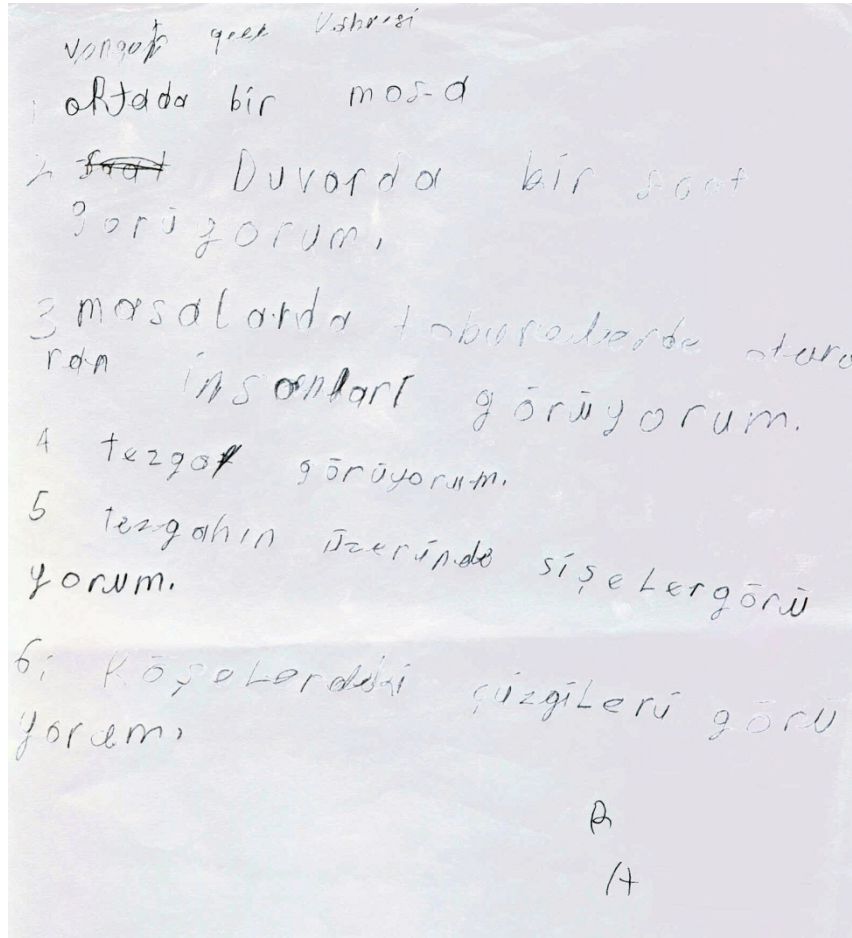 vangoh gece kahvesi
1 oRtada bir masa
2 Duvarda bir saat
görüyorum.
3 masalarda taburelerde oturo
ran insanları görüyorum.
4 tezgah görüyorum.
5 tezgahın üzerinde şişeler görü
yorum.
6. Köşelerdeki çizgileri görü
yorum.